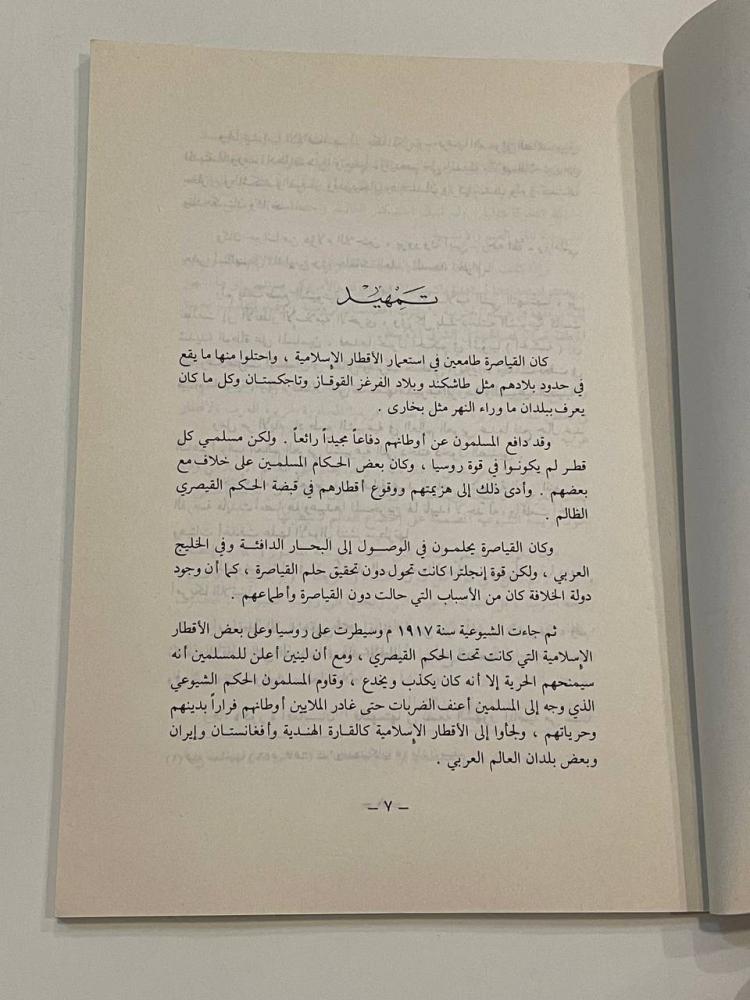 تمهيد
كان القياصرة طامعين في استعمار الأقطار الإسلامية ، واحتلوا منها ما يقع
في حدود بلادهم مثل طاشكند وبلاد الفرغز القوقاز وتاجكستان وكل ما كان
يعرف ببلدان ما وراء النهر مثل بخارى .
وقد دافع المسلمون عن أوطانهم دفاعاً مجيداً رائعاً . ولكن مسلمي كل
قطر لم يكونوا في قوة روسيا ، وكان بعض الحكام المسلمين على خلاف مع
بعضهم . وأدى ذلك إلى هزيمتهم ووقوع أقطارهم في قبضة الحكم القيصري
الظالم .
وكان القياصرة يحلمون في الوصول إلى البحار الدافئة وفي الخليج
العربي ، ولكن قوة إنجلترا كانت تحول دون تحقيق حلم القياصرة ، كما أن وجود
دولة الخلافة كان من الأسباب التي حالت دون القياصرة وأطماعهم .
ثم جاءت الشيوعية سنة ١٩١٧ م وسيطرت على روسيا وعلى بعض الأقطار
الإسلامية التي كانت تحت الحكم القيصري ، ومع أن لينين أعلن للمسلمين أنه
سيمنحهم الحرية إلا أنه كان يكذب ويخدع ، وقاوم المسلمون الحكم الشيوعي
الذي وجه إلى المسلمين أعنف الضربات حتى غادر الملايين أوطانهم فراراً بدينهم
وحرياتهم ، ولجأوا إلى الأقطار الإسلامية كالقارة الهندية وأفغانستان وإيران
وبعض بلدان العالم العربي .
– ٧ –